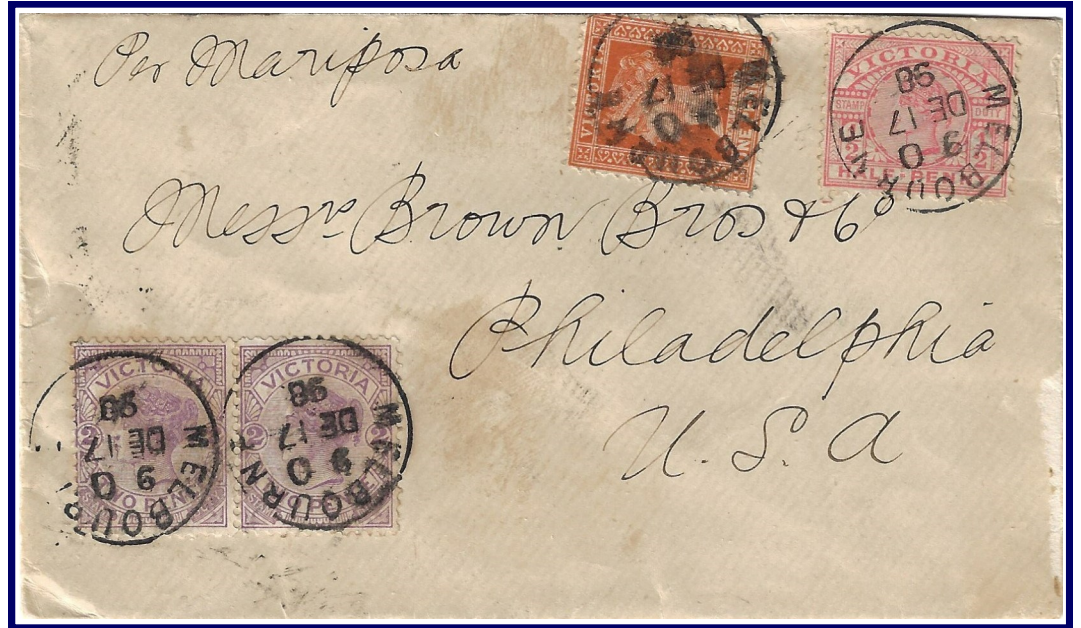 Per Mariposa
VICTORIA
MELBOURNE
98
DE 17
9 O
VICTORIA
STAMP DUTY
½ ½
HALF PENNY
MELBOURNE
98
DE 17
9 O
Messrs Brown Bros & Co
Philadelphia
U.S.A
VICTORIA
2
TWO PENCE
MELBOURNE
98
DE 17
9 O
VICTORIA
2 2
TWO PENCE
MELBOURNE
98
DE 17
9 O